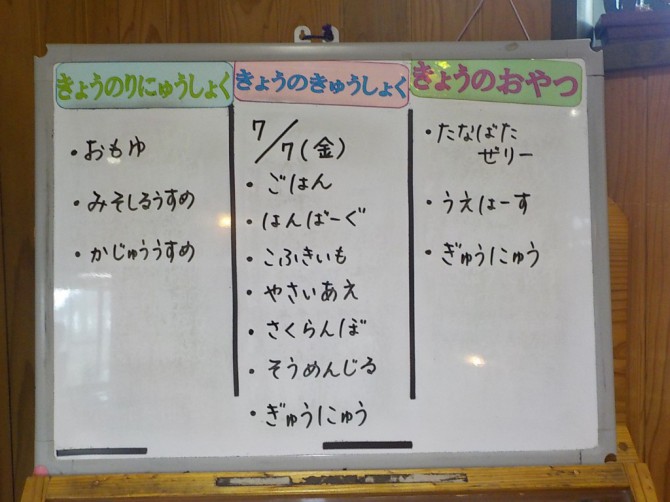 きょうのりにゅうしょく
・おもゆ
・みそしるうすめ
・かじゅううすめ
きょうのきゅうしょく
7/7(金)
・ごはん
・はんばーぐ
・こふきいも
・やさいあえ
・さくらんぼ
・そうめんじる
・ぎゅうにゅう
きょうのおやつ
・たなばた
ぜリー
・うえはーす
・ぎゅうにゅう